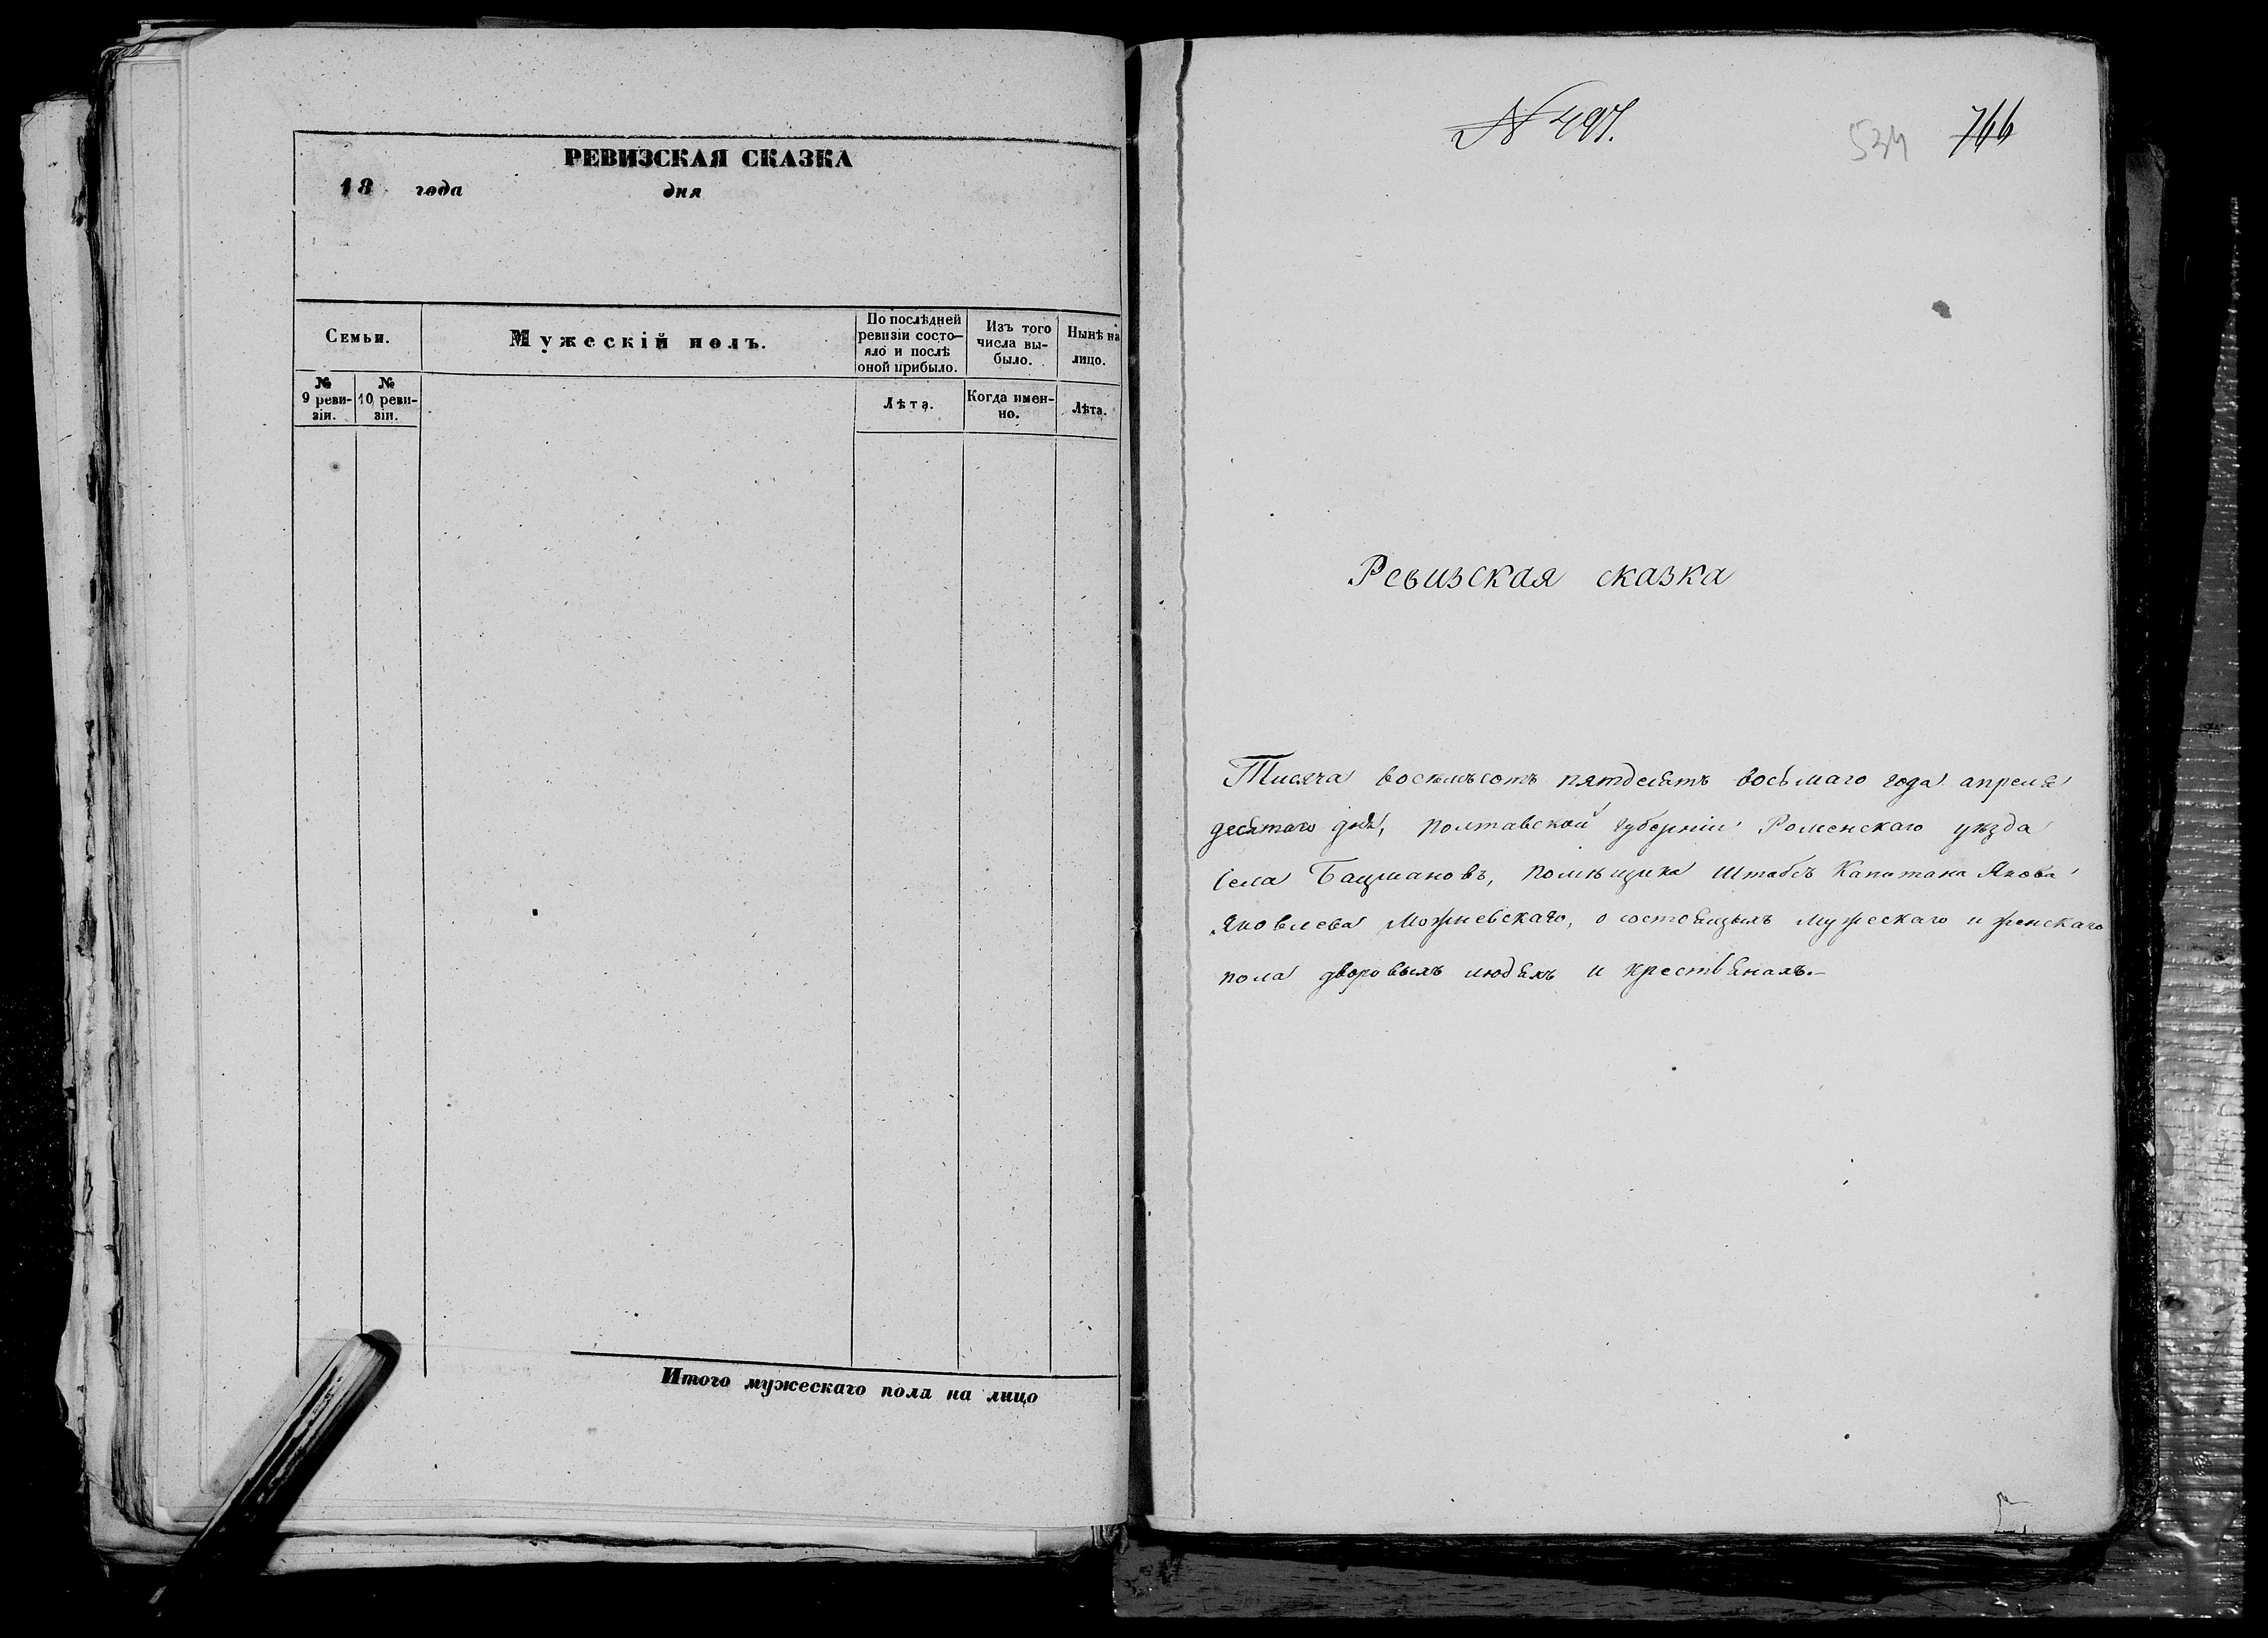 РЕВИЗСКАЯ СКАЗКА
18 года дня
Семьи.
Мужескій полъ.
По послѣдней ревизіи состо-
яло и послѣ
оной прибыло.
Изъ того
числа вы-
было.
Нынѣ на
лицо.
№
9 реви-
зіи.
№
10 реви-
зіи.
Лѣта.
Когда имен-
но.
Лѣта.
Итого мужескаго пола на лицо
№ 497.
534 766
Ревизская сказка
Тисяча восемьсотъ пятдесятъ восьмаго года апреля
десятаго дня, Полтавской губерніи Роменскаго уѣзда
Села Бацмановъ, помѣщика Штабсъ Капитана Якова
Яковлева Можневскаго, о состоящихъ мужескаго и женскаго
пола дворовыхъ людяхъ и крестьянахъ.—